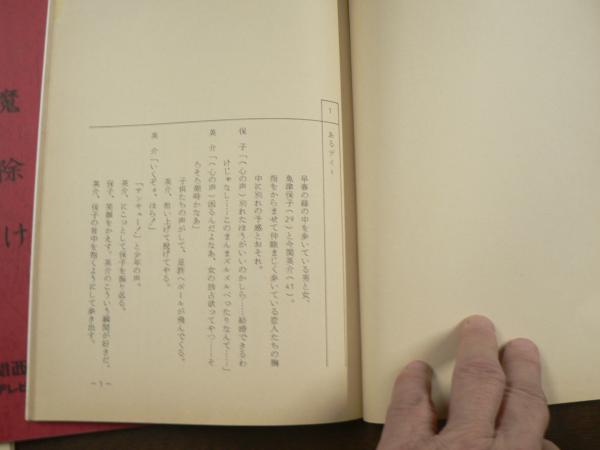 1 あるデイト
早春の緑の中を歩いている男と女、
魚津保子(29)と今関英介(41)。
指をからませて仲睦まじく歩いている恋人たちの胸
中に別れの予感とおそれ。
保子「(心の声)別れたほうがいいのかしら……結婚できるわ
けじゃなし……このまんまズルズルべったりなんて……」
英介「(心の声)困るんだよなあ、女の独占欲ってやつ……そ
ろそろ潮時かなあ」
子供たちの声がして、足許へボールが飛んでくる。
英介、拾い上げて投げてやる。
英介「いくぞォ、ほら!」
「サンキュー!」と少年の声。
英介、にこっとして保子を振り返る。
保子、笑顔をかえす。英介のこういう瞬間が好きだ。
英介、保子の背中を抱くようにして歩き出す。
〜1〜
魔除け
関西
テレビ